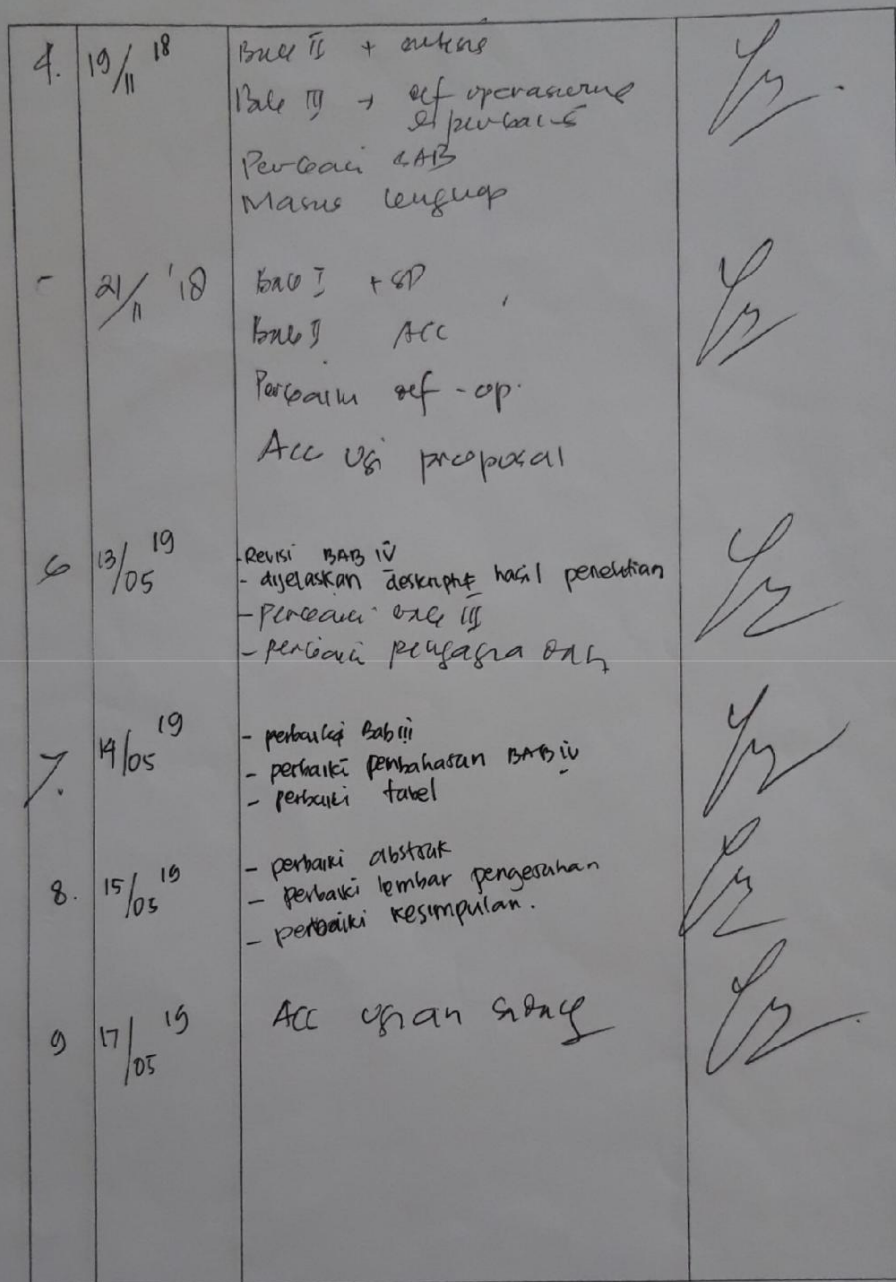 4. 19/11 18 Bab II +
Bab III → def operasional
diperbaiki
Perbaiki BAB
Masuk lengkap
5 21/11 '18 Bab I + SP
Bab II ACC
Perbaiki def - op.
Acc uji proposal
6 13/05 19 - Revisi BAB IV
- dijelaskan deskriptif hasil penelitian
- perbaiki bab III
- perbaiki
7. 14/05 19 - perbaiki Bab iii
- perbaiki pembahasan BAB iv
- perbaiki tabel
8. 15/05 19 - perbaiki abstrak
- perbaiki lembar pengesahan
- perbaiki kesimpulan.
9 17/05 19 ACC ujian sidang